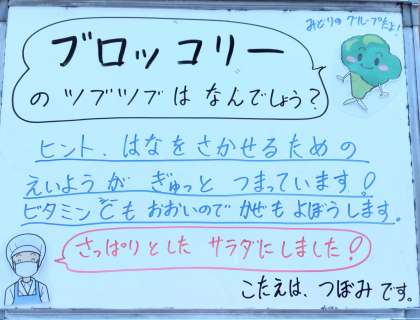 みどりのグループだよ!
ブロッコリー
のツブツブはなんでしょう?
ヒント、はなをさかせるための
えいようがぎゅっとつまっています!
ビタミンCもおおいのでかぜもよぼうします。
さっぱりとしたサラダにしました!
こたえは、つぼみです。